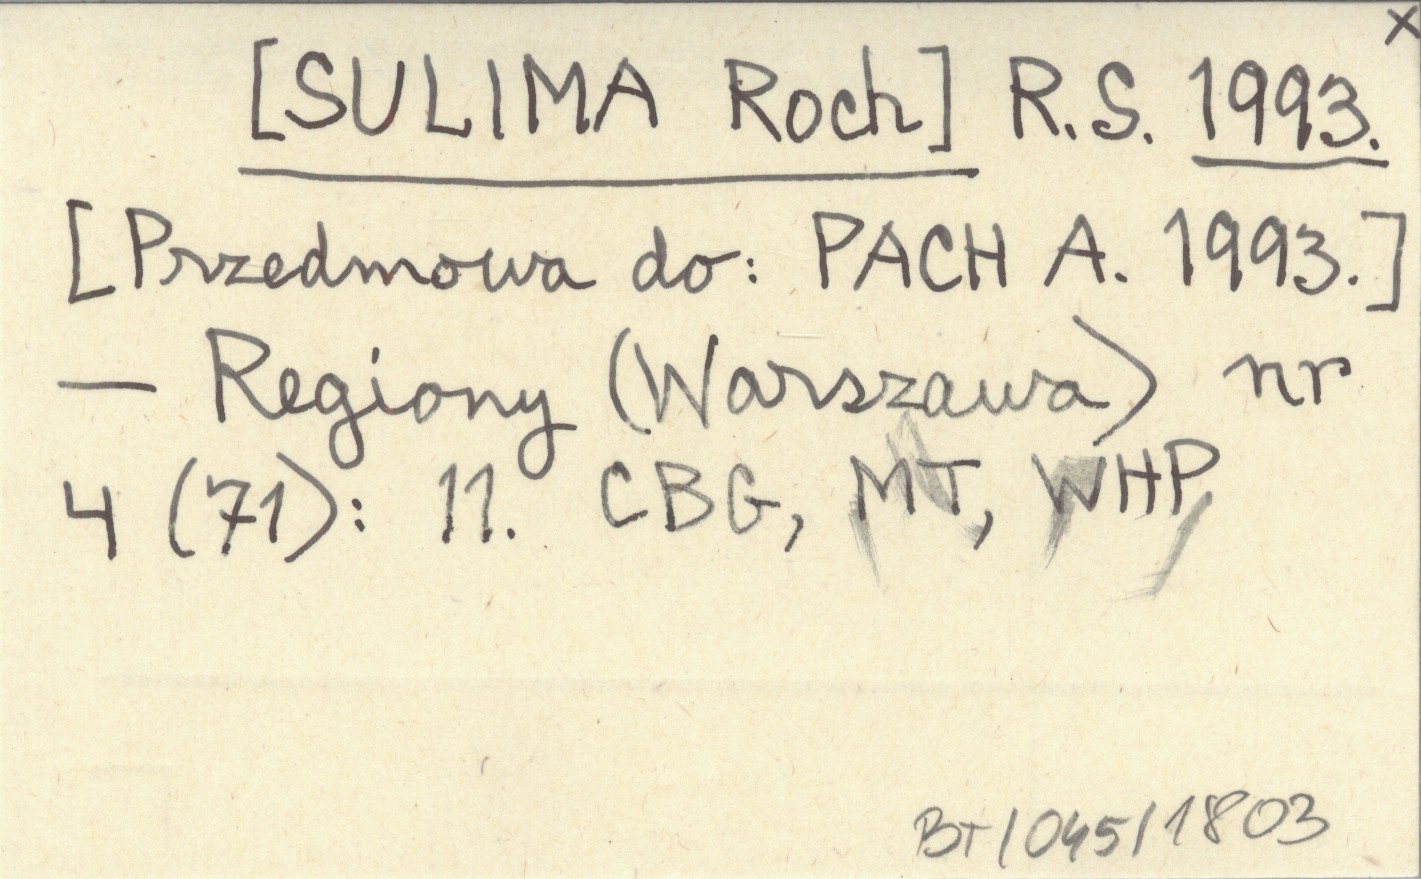 x
[SULIMA Roch] R.S. 1993.
[Przedmowa do: PACH A. 1993.]
— Regiony (Warszawa) nr
4 (71): 11. CBG, MT, WHP
BT/045/1803